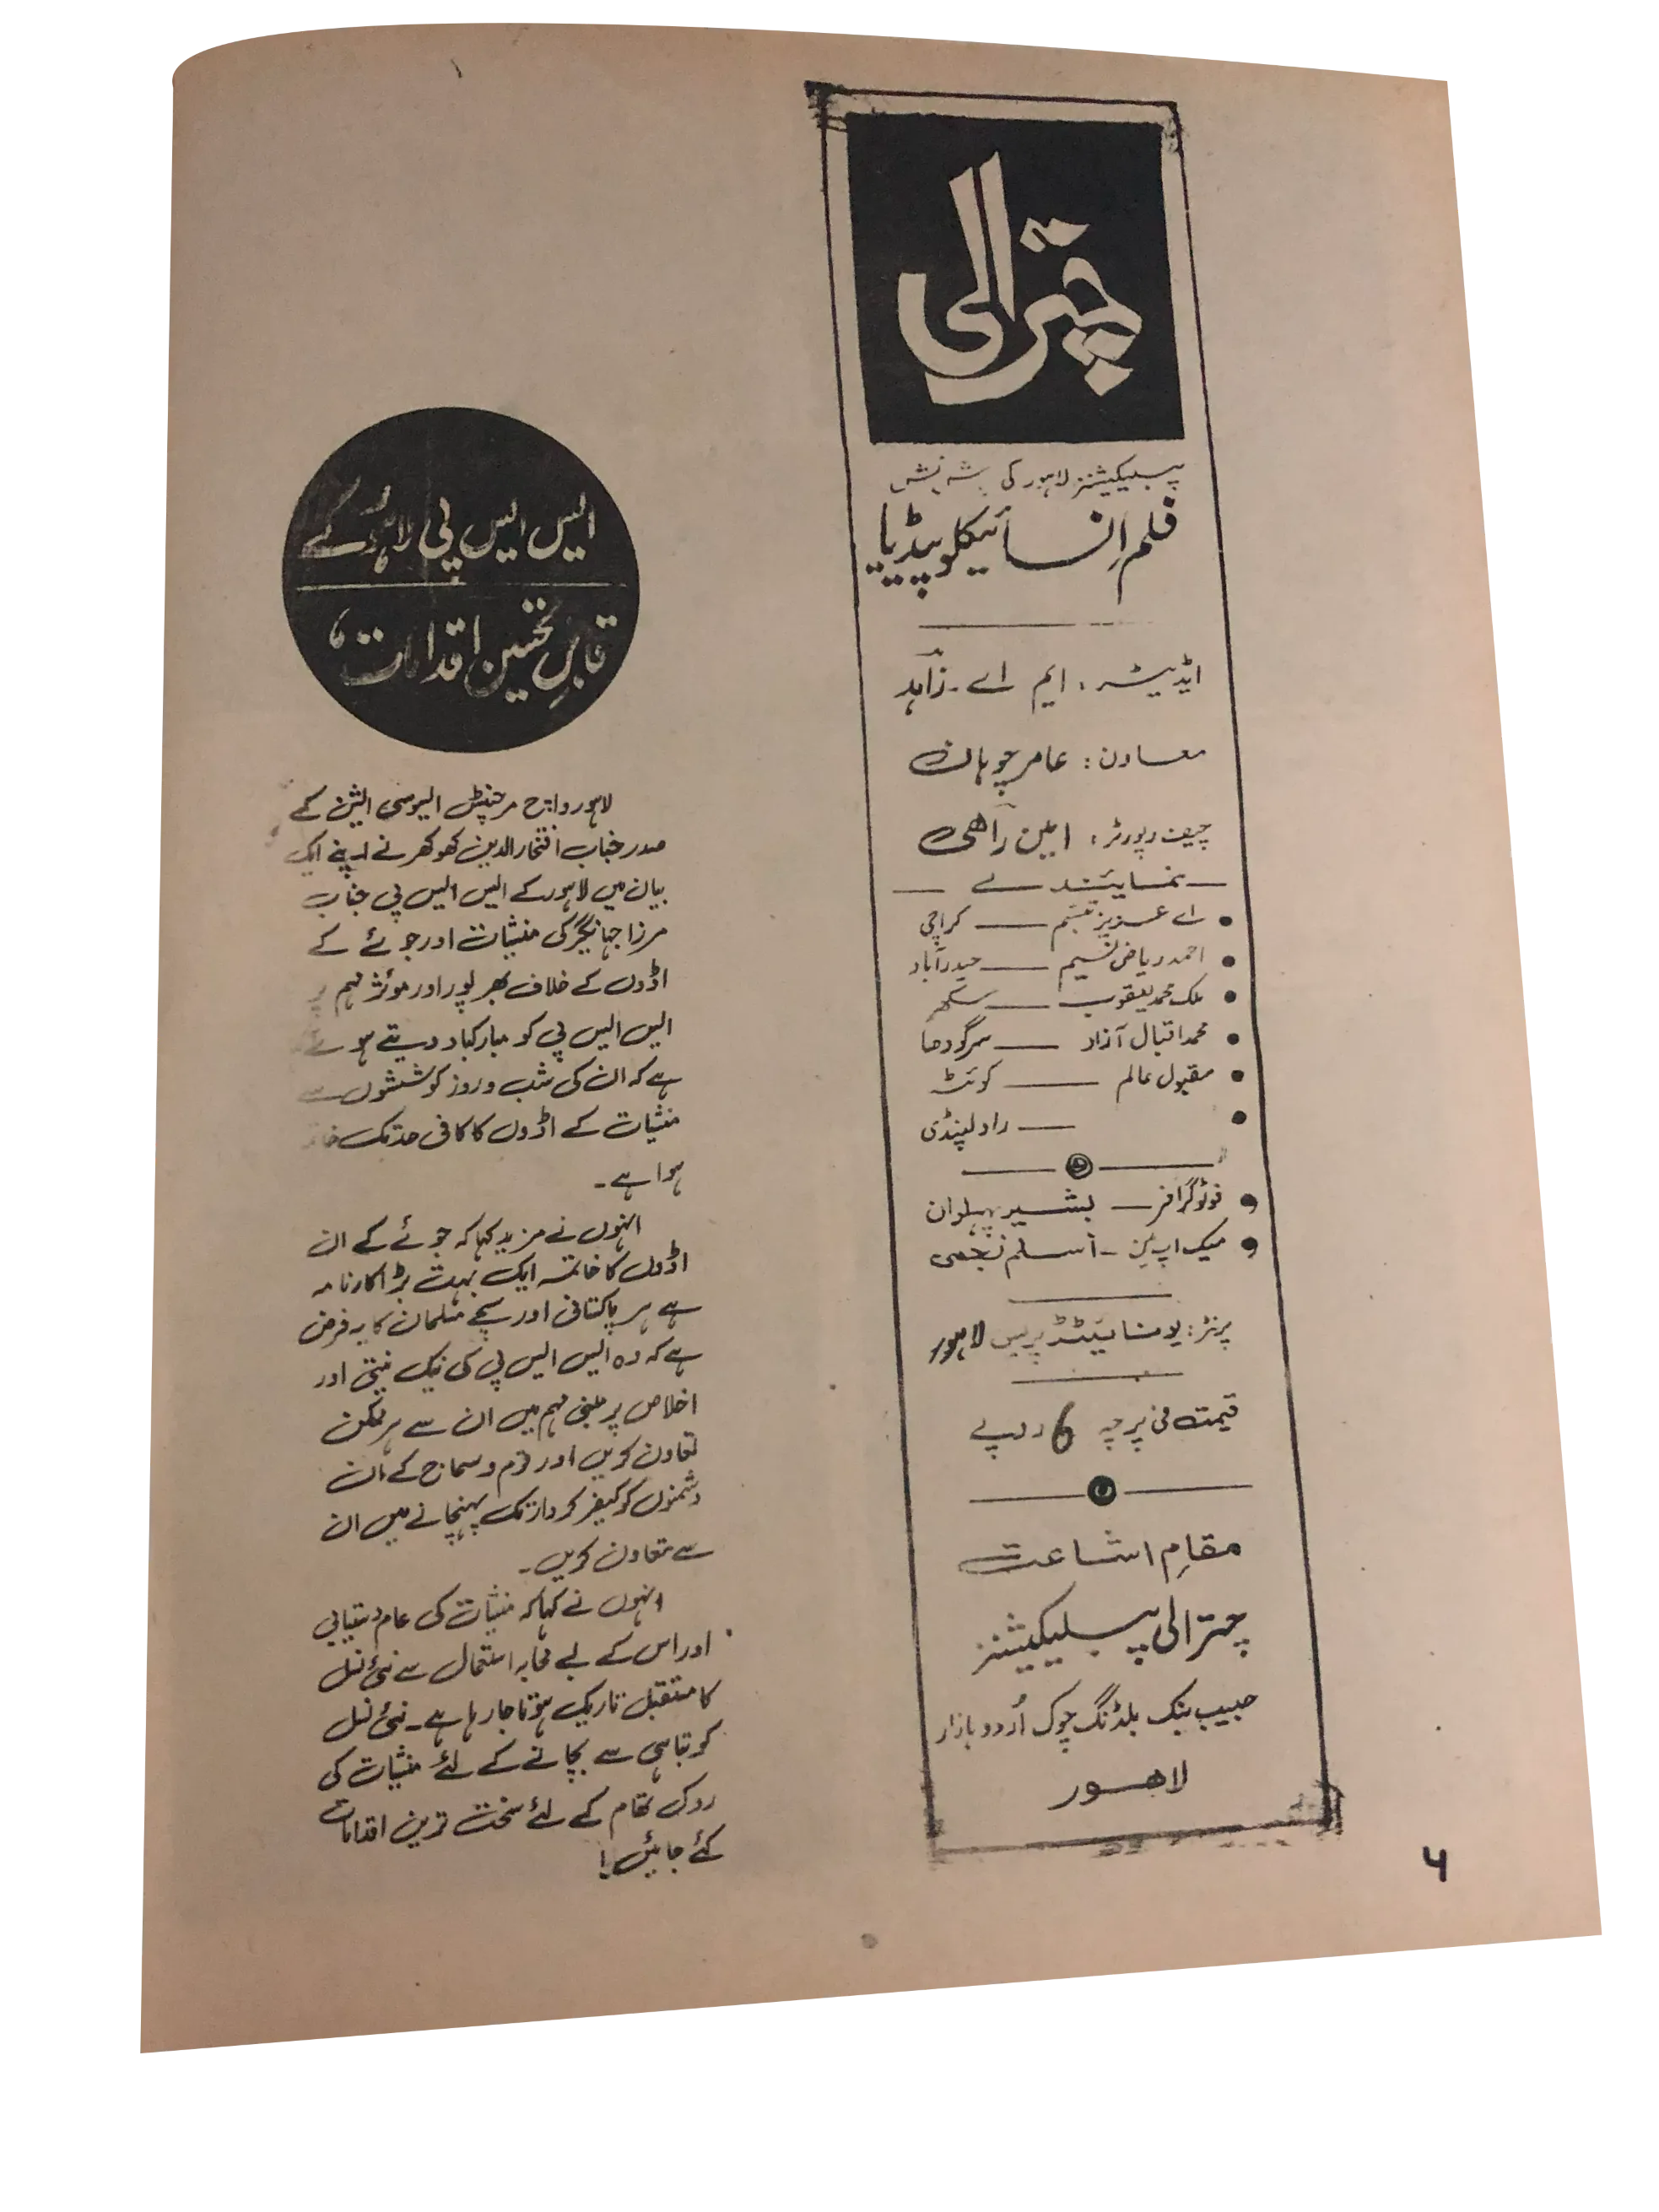 چترالی
پبلیکیشنز لاہور کی پیشکش
فلم انسائیکلوپیڈیا
ایڈیٹر : ایم اے ۔ زاہد
معاون : عامر چوہان
چیف رپورٹر : امین راھی
نمائیندے
اے عزیز تبسم — کراچی
احمد ریاض نسیم — حیدرآباد
ملک محمد یعقوب — سکھر
محمد اقبال آزاد — سرگودھا
مقبول عالم — کوئٹہ
— راولپنڈی
فوٹوگرافر — بشیر پہلوان
میک اپ مین - اسلم نجمی
پرنٹر : یونائیٹڈ پریس لاہور
قیمت فی پرچہ 6 روپے
مقامِ اشاعت
چترالی پبلیکیشنز
حبیب بنک بلڈنگ چوک اُردو بازار
لاھور
ایس ایس پی لاہور کے
قابلِ تحسین اقدامات
لاہور واچ مرچنٹس ایسوسی ایشن کے
صدر جناب افتخارالدین کھوکھر نے اپنے ایک
بیان میں لاہور کے ایس ایس پی جناب
مرزا جہانگیر کی منشیات اور جوئے کے
اڈوں کے خلاف بھرپور اور موئثر مہم پر
ایس ایس پی کو مبارکباد دیتے ہوئے
ہے کہ ان کی شب و روز کوششوں سے
منشیات کے اڈوں کا کافی حد تک
ہوا ہے ۔
انہوں نے مزید کہا کہ جوئے کے ان
اڈوں کا خاتمہ ایک بہت بڑا کارنامہ
ہے ہر پاکستانی اور سچے مسلمان کا یہ فرض
ہے کہ وہ ایس ایس پی کی نیک نیتی اور
اخلاص پر مبنی مہم میں ان سے ہر ممکن
تعاون کریں اور قوم و سماج کے ان
دشمنوں کو کیفر کردار تک پہنچانے میں ان
سے تعاون کریں ۔
انہوں نے کہا کہ منشیات کی عام دستیابی
اور اس کے بے محابہ استعمال سے نئی نسل
کا مستقبل تاریک ہوتا جا رہا ہے ۔ نئی نسل
کو تباہی سے بچانے کے لئے منشیات کی
روک تھام کے لئے سخت ترین اقدامات
کئے جائیں !
۴